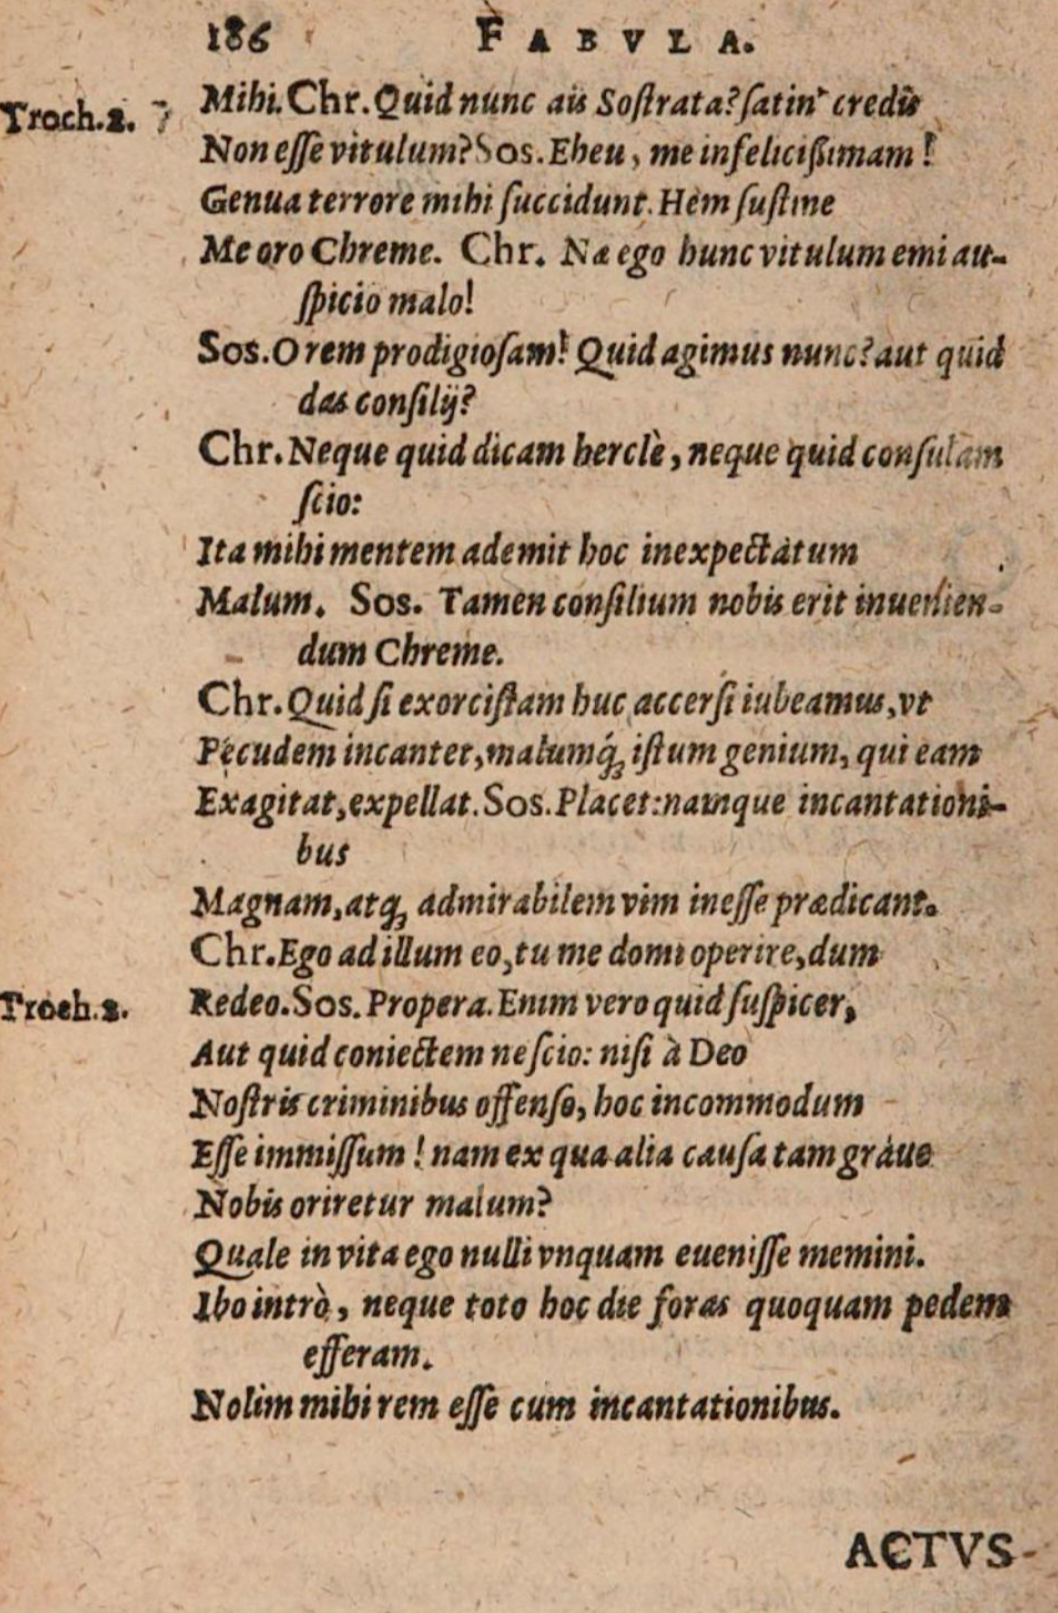 186 FABVLA.
Troch.2. Mihi. Chr. Quid nunc ais Sostrata? satin' credis
Non esse vitulum? Sos. Eheu, me infelicissimam!
Genua terrore mihi succidunt. Hem sustine
Me oro Chreme. Chr. Næ ego hunc vitulum emi au-
spicio malo!
Sos. O rem prodigiosam! Quid agimus nunc? aut quid
das consilij?
Chr. Neque quid dicam herclè, neque quid consulam
scio:
Ita mihi mentem ademit hoc inexpectatum
Malum. Sos. Tamen consilium nobis erit inuenien-
dum Chreme.
Chr. Quid si exorcistam huc accersi iubeamus, vt
Pecudem incantet, malumq́; istum genium, qui eam
Exagitat, expellat. Sos. Placet: namque incantationi-
bus
Magnam, atq; admirabilem vim inesse prædicant.
Chr. Ego ad illum eo, tu me domi operire, dum
Troch.2. Redeo. Sos. Propera. Enim vero quid suspicer,
Aut quid coniectem nescio: nisi à Deo
Nostris criminibus offenso, hoc incommodum
Esse immissum! nam ex qua alia causa tam graue
Nobis oriretur malum?
Quale in vita ego nulli vnquam euenisse memini.
Ibo intrò, neque toto hoc die foras quoquam pedem
efferam.
Nolim mihi rem esse cum incantationibus.
ACTVS